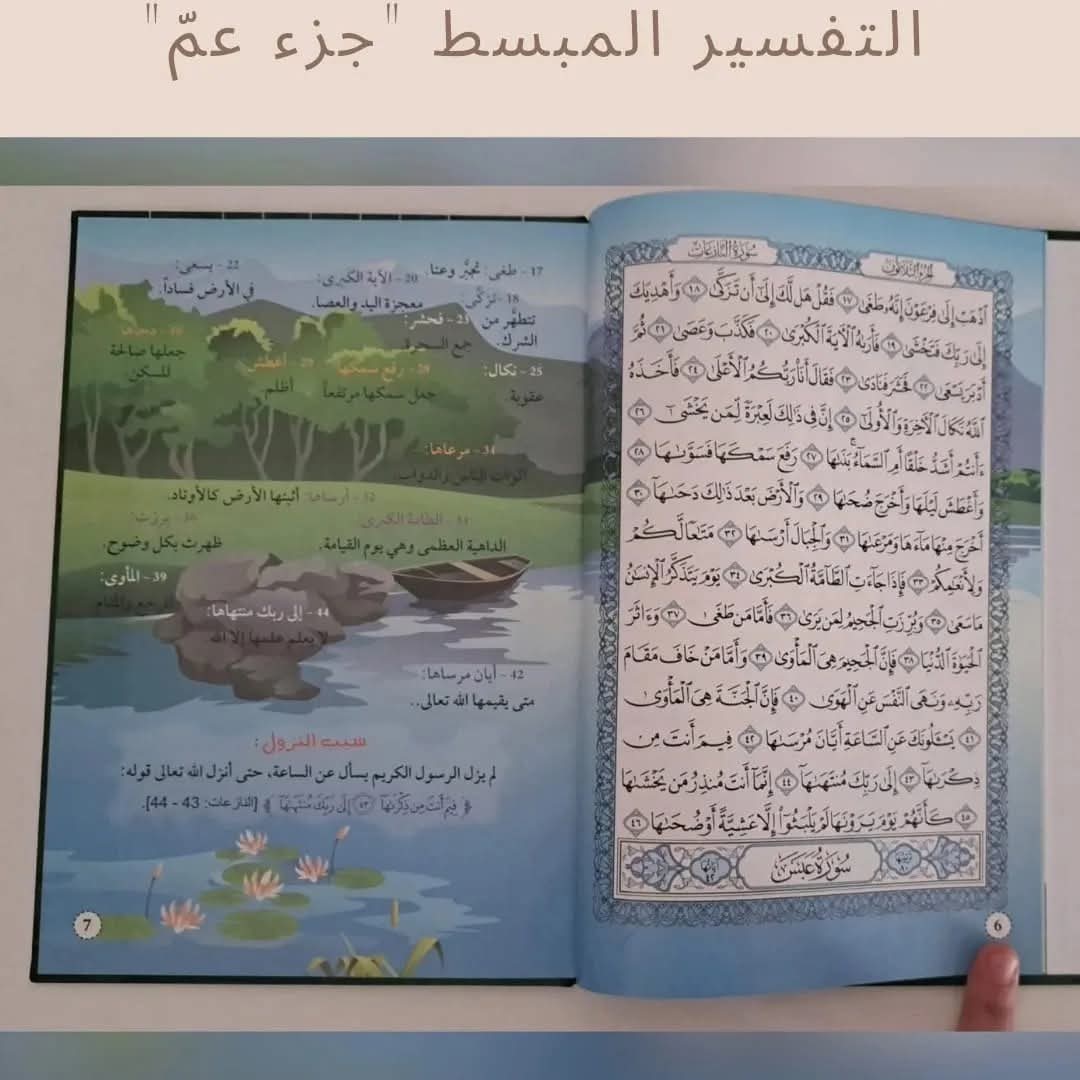 التفسير المبسط "جزء عمّ"
الجزء الثلاثون
سورة النازعات
ٱذۡهَبۡ إِلَىٰ فِرۡعَوۡنَ إِنَّهُۥ طَغَىٰ ١٧ فَقُلۡ هَل لَّكَ إِلَىٰٓ أَن تَزَكَّىٰ ١٨ وَأَهۡدِيَكَ
إِلَىٰ رَبِّكَ فَتَخۡشَىٰ ١٩ فَأَرَىٰهُ ٱلۡأٓيَةَ ٱلۡكُبۡرَىٰ ٢٠ فَكَذَّبَ وَعَصَىٰ ٢١ ثُمَّ
أَدۡبَرَ يَسۡعَىٰ ٢٢ فَحَشَرَ فَنَادَىٰ ٢٣ فَقَالَ أَنَا۠ رَبُّكُمُ ٱلۡأَعۡلَىٰ ٢٤ فَأَخَذَهُ
ٱللَّهُ نَكَالَ ٱلۡأٓخِرَةِ وَٱلۡأُولَىٰٓ ٢٥ إِنَّ فِي ذَٰلِكَ لَعِبۡرَةٗ لِّمَن يَخۡشَىٰٓ ٢٦
ءَأَنتُمۡ أَشَدُّ خَلۡقًا أَمِ ٱلسَّمَآءُۚ بَنَىٰهَا ٢٧ رَفَعَ سَمۡكَهَا فَسَوَّىٰهَا ٢٨
وَأَغۡطَشَ لَيۡلَهَا وَأَخۡرَجَ ضُحَىٰهَا ٢٩ وَٱلۡأَرۡضَ بَعۡدَ ذَٰلِكَ دَحَىٰهَآ ٣٠
أَخۡرَجَ مِنۡهَا مَآءَهَا وَمَرۡعَىٰهَا ٣١ وَٱلۡجِبَالَ أَرۡسَىٰهَا ٣٢ مَتَٰعٗا لَّكُمۡ
وَلِأَنۡعَٰمِكُمۡ ٣٣ فَإِذَا جَآءَتِ ٱلطَّآمَّةُ ٱلۡكُبۡرَىٰ ٣٤ يَوۡمَ يَتَذَكَّرُ ٱلۡإِنسَٰنُ
مَا سَعَىٰ ٣٥ وَبُرِّزَتِ ٱلۡجَحِيمُ لِمَن يَرَىٰ ٣٦ فَأَمَّا مَن طَغَىٰ ٣٧ وَءَاثَرَ
ٱلۡحَيَوٰةَ ٱلدُّنۡيَا ٣٨ فَإِنَّ ٱلۡجَحِيمَ هِيَ ٱلۡمَأۡوَىٰ ٣٩ وَأَمَّا مَنۡ خَافَ مَقَامَ
رَبِّهِۦ وَنَهَى ٱلنَّفۡسَ عَنِ ٱلۡهَوَىٰ ٤٠ فَإِنَّ ٱلۡجَنَّةَ هِيَ ٱلۡمَأۡوَىٰ
٤١ يَسۡـَٔلُونَكَ عَنِ ٱلسَّاعَةِ أَيَّانَ مُرۡسَىٰهَا ٤٢ فِيمَ أَنتَ مِن
ذِكۡرَىٰهَآ ٤٣ إِلَىٰ رَبِّكَ مُنتَهَىٰهَآ ٤٤ إِنَّمَآ أَنتَ مُنذِرُ مَن يَخۡشَىٰهَا
٤٥ كَأَنَّهُمۡ يَوۡمَ يَرَوۡنَهَا لَمۡ يَلۡبَثُوٓاْ إِلَّا عَشِيَّةً أَوۡ ضُحَىٰهَا ٤٦
ترتيبها ٨٠ سورة عبس آياتها ٤٢
6
17 - طغى: تجبَّر وعتا.
18 - تزكّى:
تتطهَّر من
الشرك.
20 - الآية الكبرى:
معجزة اليد والعصا.
22 - يسعى:
في الأرض فساداً.
23 - فحشر:
جمع السحرة.
25 - نكال:
عقوبة.
28 - رفع سمكها:
جعل سمكها مرتفعاً
29 - أغطش
أظلم.
30 - دحاها
جعلها صالحة
للسكن
31 - مرعاها:
أقوات الناس والدواب.
32 - أرساها: أثبتها الأرض كالأوتاد.
34 - الطامة الكبرى:
الداهية العظمى وهي يوم القيامة.
36 - برزت:
ظهرت بكل وضوح.
39 - المأوى:
المرجع والمقام
44 - إلى ربك منتهاها:
لا يعلم علمها إلا الله
42 - أيان مرساها:
متى يقيمها الله تعالى..
سبب النزول:
لم يزل الرسول الكريم يسأل عن الساعة، حتى أنزل الله تعالى قوله:
﴿ فِيمَ أَنتَ مِن ذِكۡرَىٰهَآ ٤٣ إِلَىٰ رَبِّكَ مُنتَهَىٰهَآ ﴾ [النازعات: 43 - 44].
7